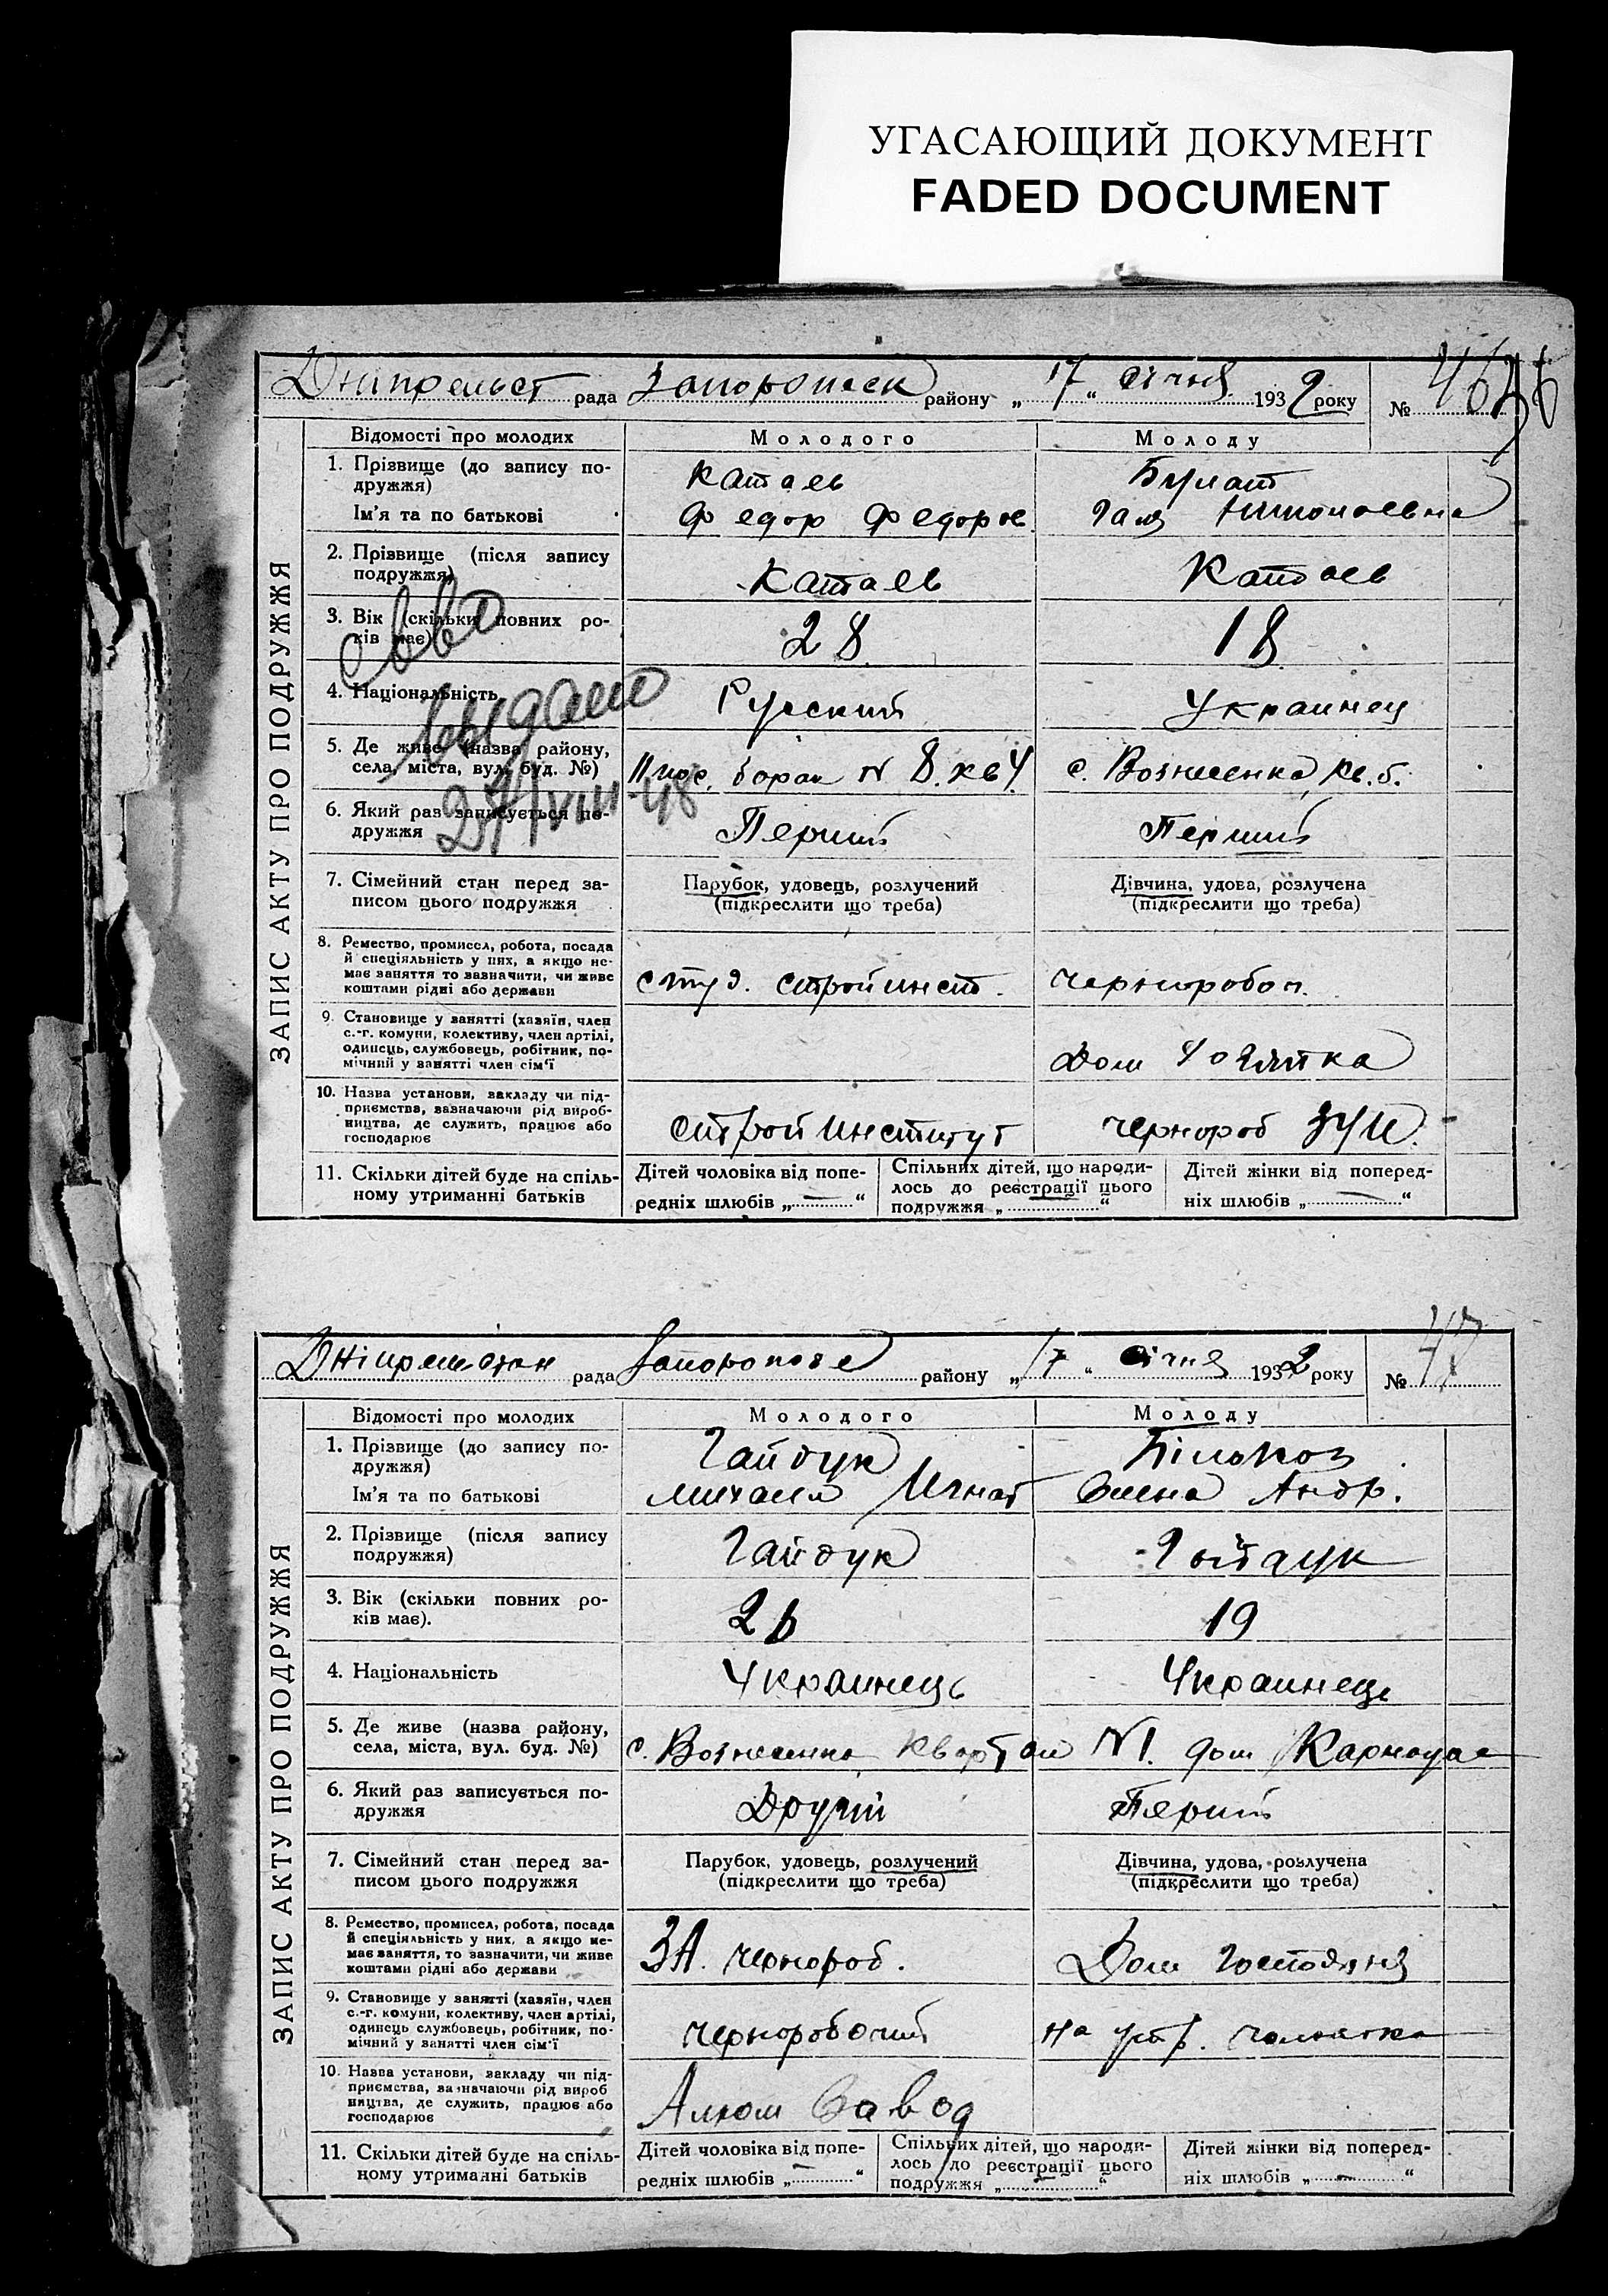 УГАСАЮЩИЙ ДОКУМЕНТ
FADED DOCUMENT
рада Запорожск району „17“ січня 1932 року № 46
ЗАПИС АКТУ ПРО ПОДРУЖЖЯ
Відомості про молодих Молодого Молоду
1. Прізвище (до запису по-
дружжя)
Катаев Булат
Ім'я та по батькові Федор Федоров Галя
2. Прізвище (після запису
подружжя)
Катаев Катаев
3. Вік (скільки повних ро-
ків має)
28 18
4. Національність Русский Украинец
выдано
5. Де живе (назва району,
села, міста, вул. буд. №)
N 8. кв 4 с. Вознесенка, кв. б.
27/VIII-48
6. Який раз записується по-
дружжя
Перший Перший
7. Сімейний стан перед за-
писом цього подружжя
Парубок, удовець, розлучений
(підкреслити що треба)
Дівчина, удова, розлучена
(підкреслити що треба)
8. Ремество, промисел, робота, посада
й спеціяльність у них, а якщо не-
має заняття то зазначити, чи живе
коштами рідні або держави
студ. стройинст. Чернороб
9. Становище у занятті (хазяїн, член
с.-г. комуни, колективу, член артілі,
одинець, службовець, робітник, по-
мічний у занятті член сім'ї
Дом
10. Назва установи, закладу чи під-
приємства, зазначаючи рід вироб-
ництва, де служить, працює або
господарює
Строй Институт чернороб
11. Скільки дітей буде на спіль-
ному утриманні батьків
Дітей чоловіка від попе-
редніх шлюбів „ — “
Спільних дітей, що народи-
лось до реєстрації цього
подружжя „ “
Дітей жінки від поперед-
ніх шлюбів „ — “
рада району „17“ січня 1932 року № 47
ЗАПИС АКТУ ПРО ПОДРУЖЖЯ
Відомості про молодих Молодого Молоду
1. Прізвище (до запису по-
дружжя)
Гайдук Білокоз
Ім'я та по батькові Михаил Игнат Елена Андр.
2. Прізвище (після запису
подружжя)
Гайдук Гайдук
3. Вік (скільки повних ро-
ків має).
26 19
4. Національність Украинець Украинець
5. Де живе (назва району,
села, міста, вул. буд. №)
с. Вознесенка Квартал N1. дом
6. Який раз записується по-
дружжя
Другий Перший
7. Сімейний стан перед за-
писом цього подружжя
Парубок, удовець, розлучений
(підкреслити що треба)
Дівчина, удова, розлучена
(підкреслити що треба)
8. Ремество, промисел, робота, посада
й спеціяльність у них, а якщо не-
має заняття, то зазначити, чи живе
коштами рідні або держави
ЗА. чернороб. Дом Господиня
9. Становище у занятті (хазяїн, член
с.-г. комуни, колективу, член артілі,
одинець службовець, робітник, по-
мічний у занятті член сім'ї
Чернорабочий на утр.
10. Назва установи, закладу чи під-
приємства, зазначаючи рід вироб
ництва, де служить, працює або
господарює
Алюм Завод
11. Скільки дітей буде на спіль-
ному утриманні батьків
Дітей чоловіка від попе-
редніх шлюбів „ — “
Спільних дітей, що народи-
лось до реєстрації цього
подружжя „ — “
Дітей жінки від поперед-
ніх шлюбів „ — “